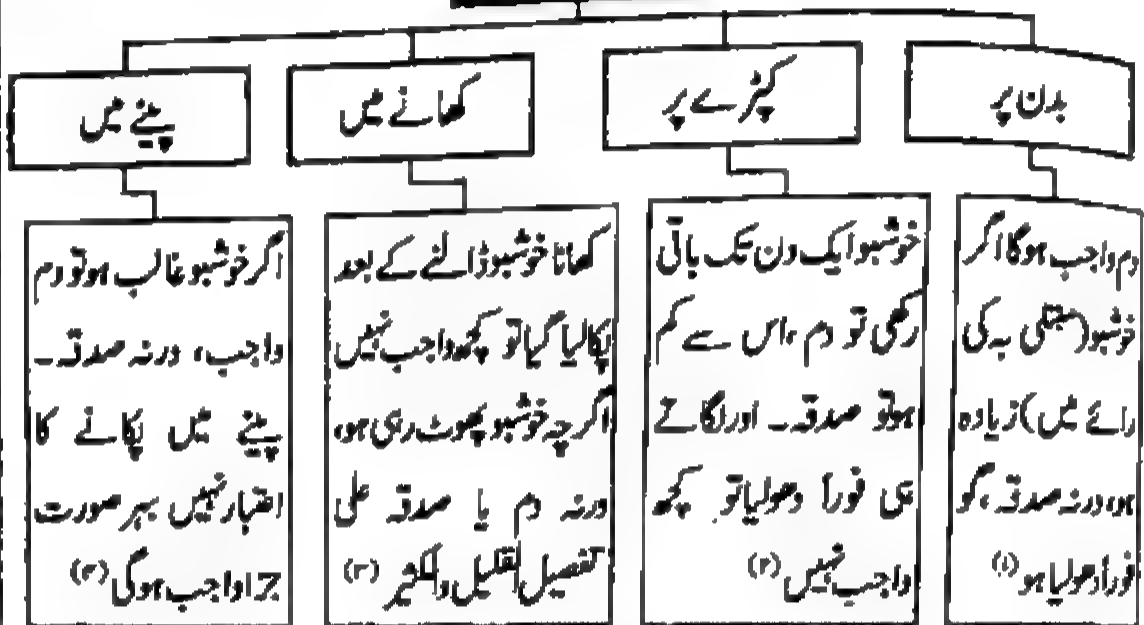 بدن پر
کپڑے پر
کھانے میں
پینے میں
دم واجب ہوگا اگر
خوشبو (مبتلیٰ بہ کی
رائے میں) زیادہ
ہو، ورنہ صدقہ، گو
فوراً دھولیا ہو (۱)
خوشبو ایک دن تک باقی
رکھی تو دم، اس سے کم
ہوتو صدقہ۔ اور لگاتے
ہی فوراً دھولیا تو کچھ
واجب نہیں (۲)
کھانا خوشبو ڈالنے کے بعد
پکالیا گیا تو کچھ واجب نہیں
اگرچہ خوشبو پھوٹ رہی ہو،
ورنہ دم یا صدقہ علی
تفصیل القلیل والکثیر (۳)
اگر خوشبو غالب ہو تو دم
واجب، ورنہ صدقہ۔
پینے میں پکانے کا
اعتبار نہیں بہر صورت
جزا واجب ہوگی (۴)